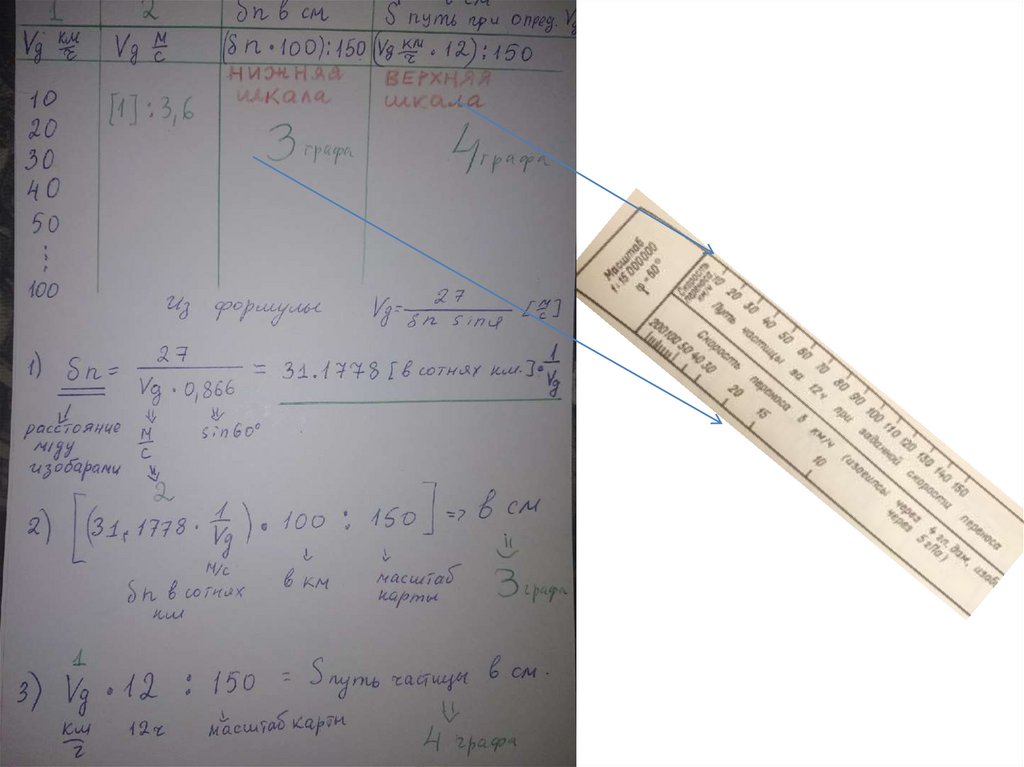 1 2 δn в см S путь при опред. Vg
Vg км/ч Vg м/с (δn • 100) : 150 (Vg км/ч • 12) : 150
НИЖНЯЯ ВЕРХНЯЯ
шкала шкала
10 [1] : 3,6
20 3 графа 4 графа
30
40
50
⋮
100
Из формулы Vg = 27 / δn sinφ [м/с]
1) δn = 27 / Vg • 0,866 = 31.1778 [в сотнях км.] • 1/Vg
расстояние м/с sin60°
м/ду
изобарами
2
2) [(31,1778 • 1/Vg) • 100 : 150] => в см
м/с
δn в сотнях в км масштаб 3 графа
км карты
1
3) Vg • 12 : 150 = S путь частицы в см.
км/ч 12ч масштаб карты
4 графа
Масштаб
1:15 000000
φ = 60°
Скорость
переноса
км/ч
10 20 30 40 50 60 70 80 90 100 110 120 130 140 150
Путь частицы за 12ч при заданной скорости переноса
Скорость переноса в км/ч (изогипсы через 4 гп. дам,
через 5 гПа)
200 100 50 40 30 20 15 10